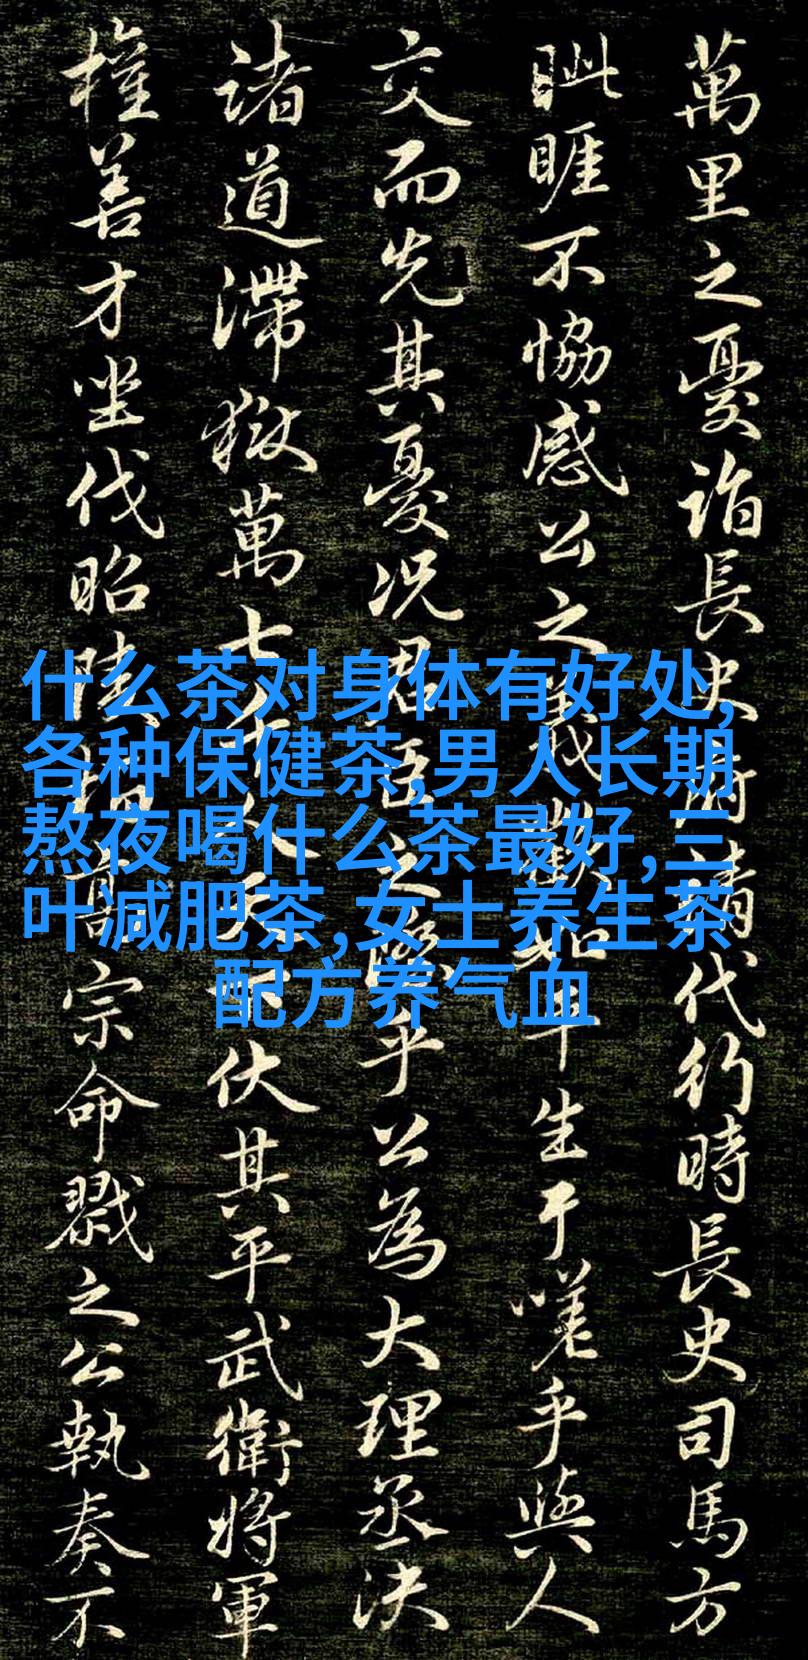 萬里之憂詣長史府請代行時長史司馬方
眦睚不恊感公之義歡如平生于嗟乎與人
交而先其憂況君臣之際乎公為大理丞決
諸道滯獄萬七千人天下伏其平武衛將軍
權善才坐伐昭陵柏高宗命戮之公執奏不
什么茶对身体有好处,
各种保健茶,男人长期
熬夜喝什么茶最好,三
叶减肥茶,女士养生茶
配方养气血